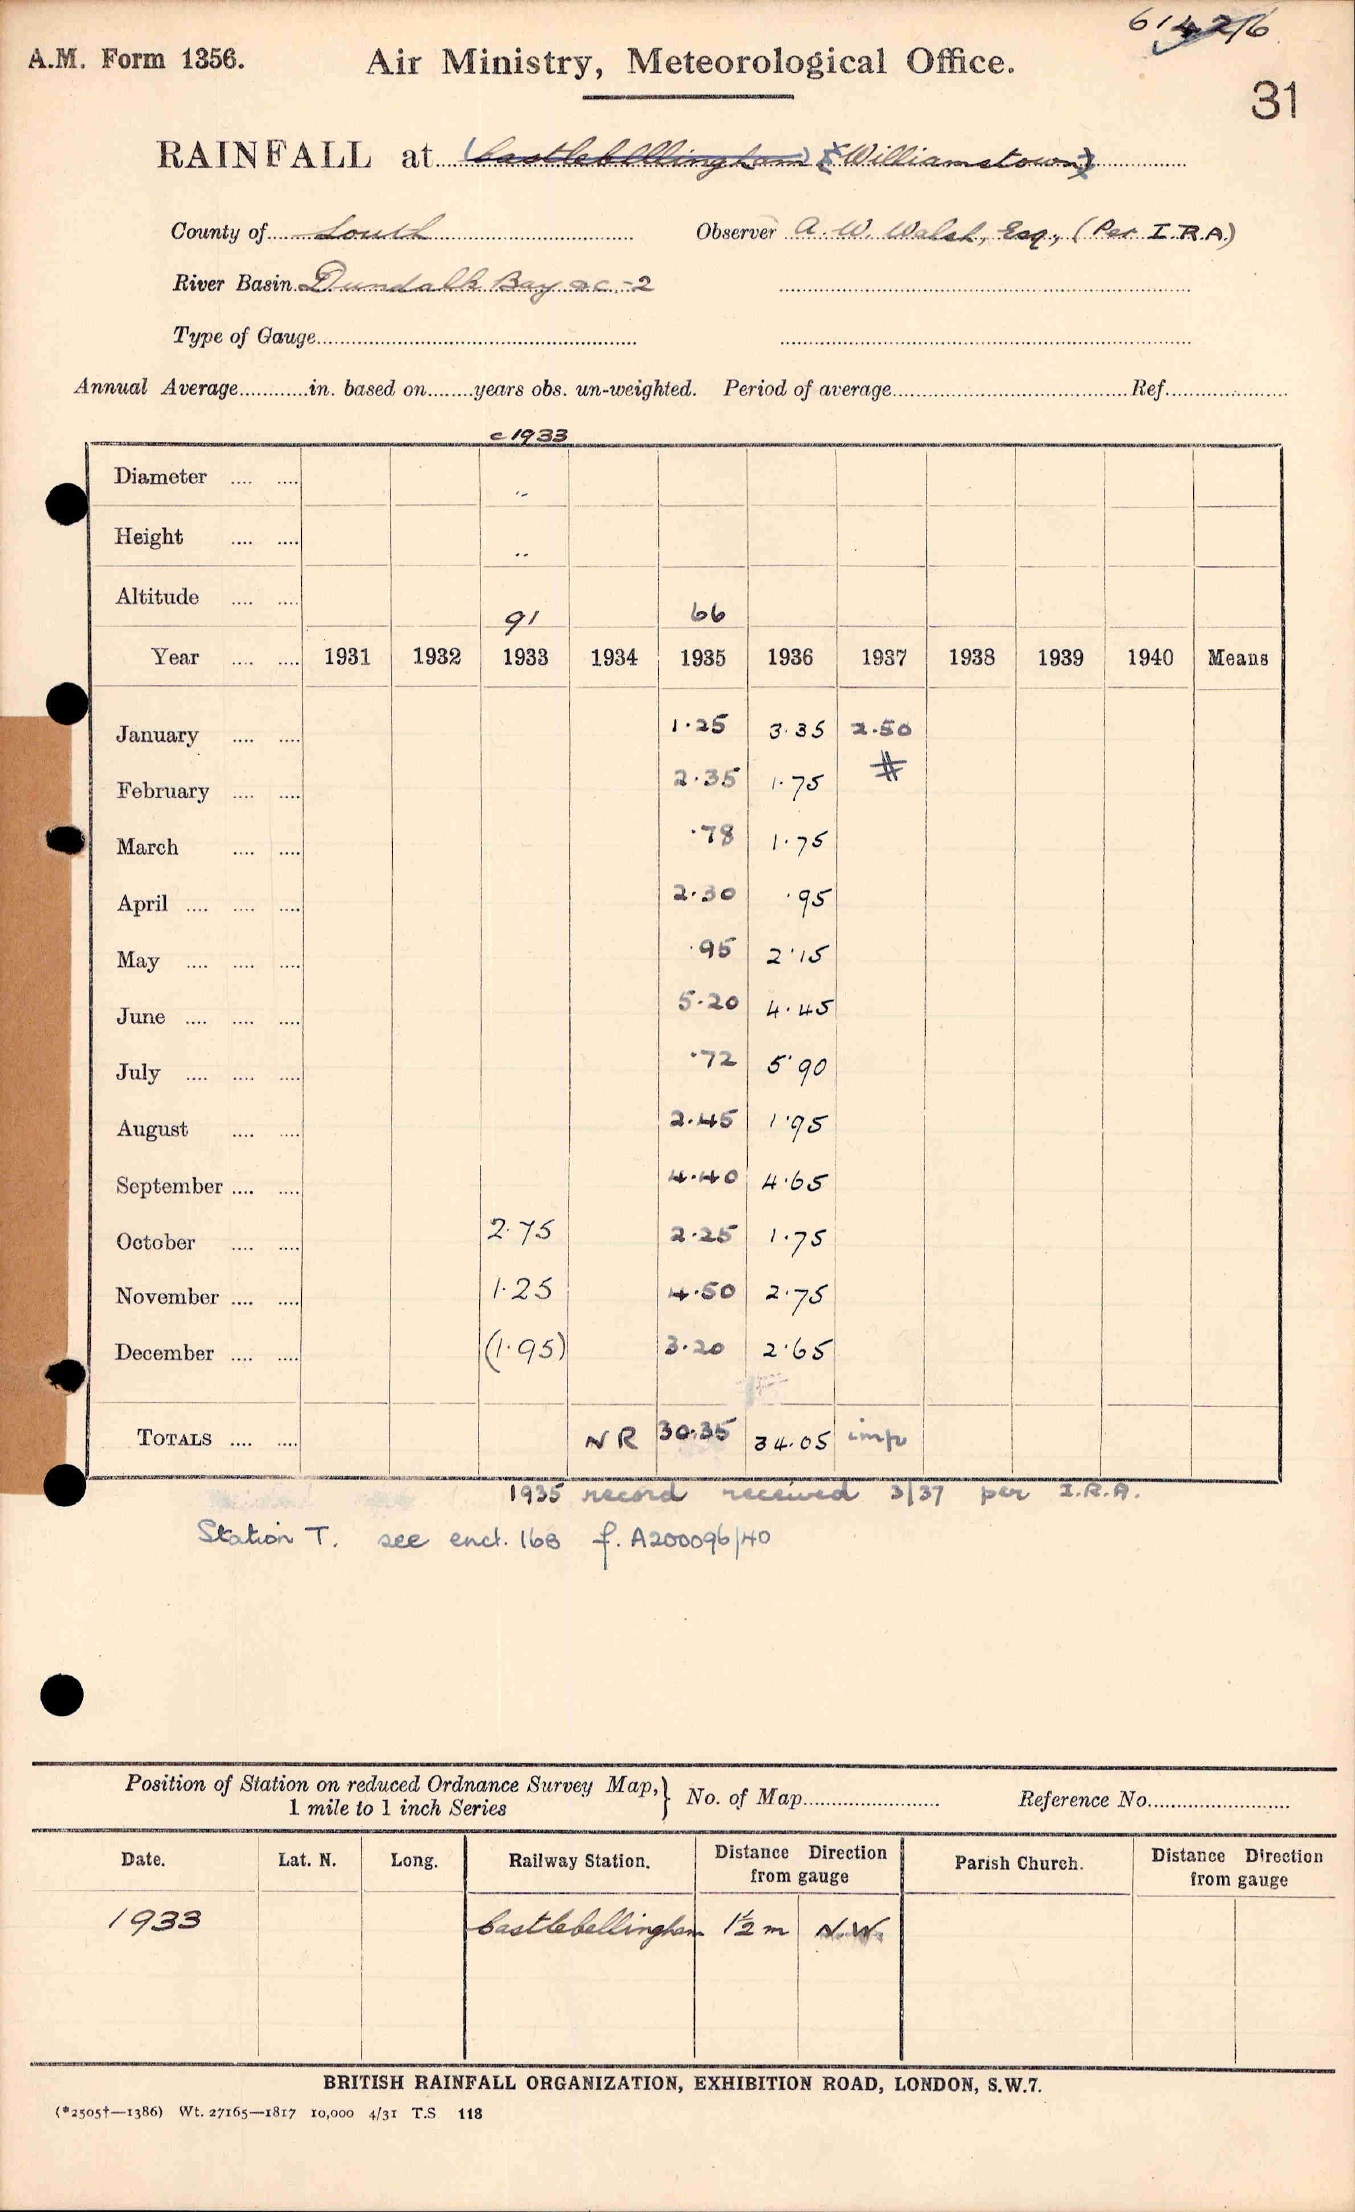 A.M. Form 1356.
Air Ministry, Meteorological Office.
31
RAINFALL at (Castlebellingham) (Williamstown)
County of Louth Observer A. W. Walsh, Esq., (Per I.R.A.)
River Basin Dundalk Bay &c.-2
Type of Gauge
Annual Average in. based on years obs. un-weighted. Period of average Ref.
c1933
Diameter "
Height "
Altitude 91 66
Year 1931 1932 1933 1934 1935 1936 1937 1938 1939 1940 Means
January 1.25 3.35 2.50
#
February 2.35 1.75
March .78 1.75
April 2.30 .95
May .95 2.15
June 5.20 4.45
July .72 5.90
August 2.45 1.95
September 4.40 4.65
October 2.75 2.25 1.75
November 1.25 4.50 2.75
December (1.95) 3.20 2.65
TOTALS NR 30.35 34.05 imp
1935 record received 3/37 per I.R.A.
Station T. see encl. 16B f. A200096/40
Position of Station on reduced Ordnance Survey Map, } No. of Map Reference No.
1 mile to 1 inch Series
Date. Lat. N. Long. Railway Station. Distance Direction from gauge Parish Church. Distance Direction from gauge
1933 Castlebellingham 1½ m N.W.
BRITISH RAINFALL ORGANIZATION, EXHIBITION ROAD, LONDON, S.W.7.
(*2505†—1386) Wt. 27165—1817 10,000 4/31 T.S 118